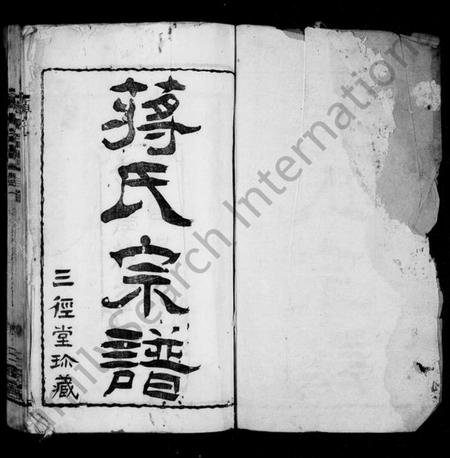 蒋氏宗譜
三徑堂珍藏
FamilySearch International